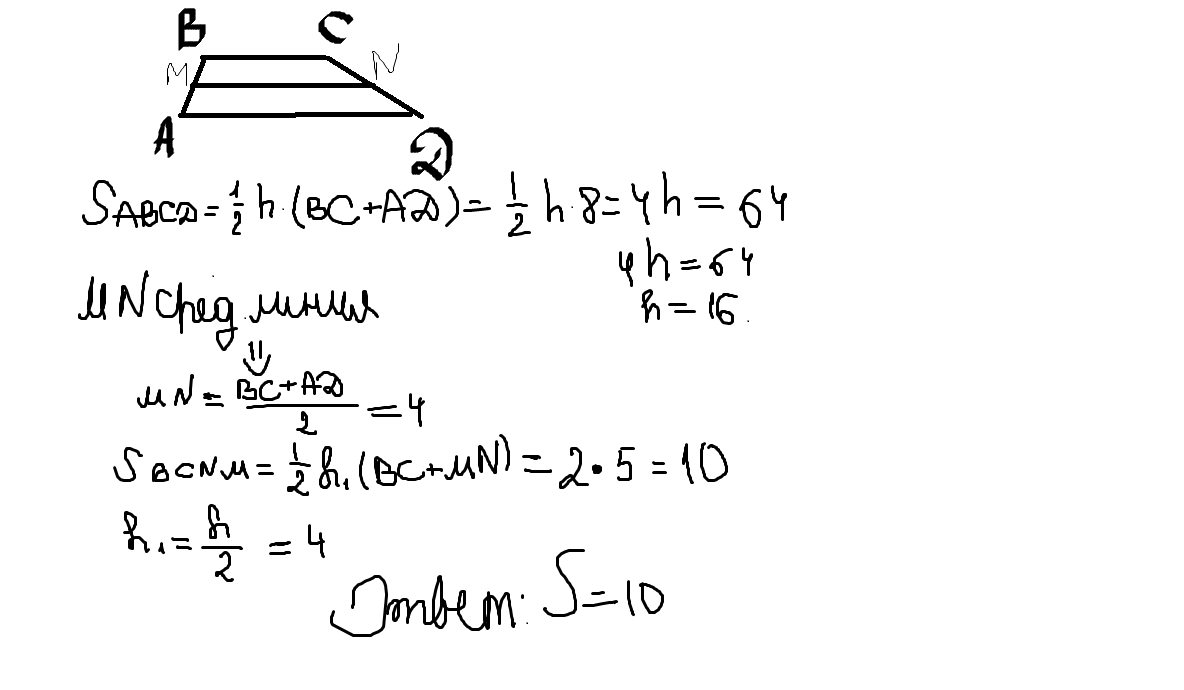 B C
M N
A D
S ABCD = 1/2 h · (BC + AD) = 1/2 h · 8 = 4h = 64
4h = 64
h = 16
MN сред. линия
⇓
MN = (BC + AD)/2 = 4
S BCNM = 1/2 h₁ (BC + MN) = 2 · 5 = 10
h₁ = h/2 = 4
Ответ: S = 10